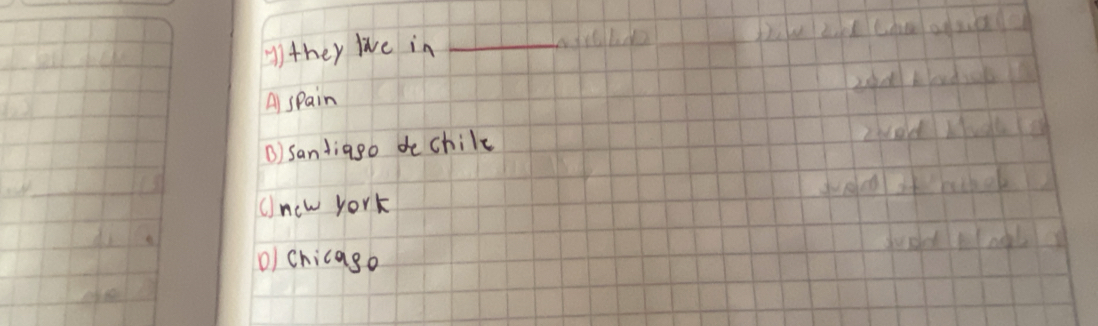 4) they live in ________
A) spain
B) santiago de chile
C) new york
D) chicago